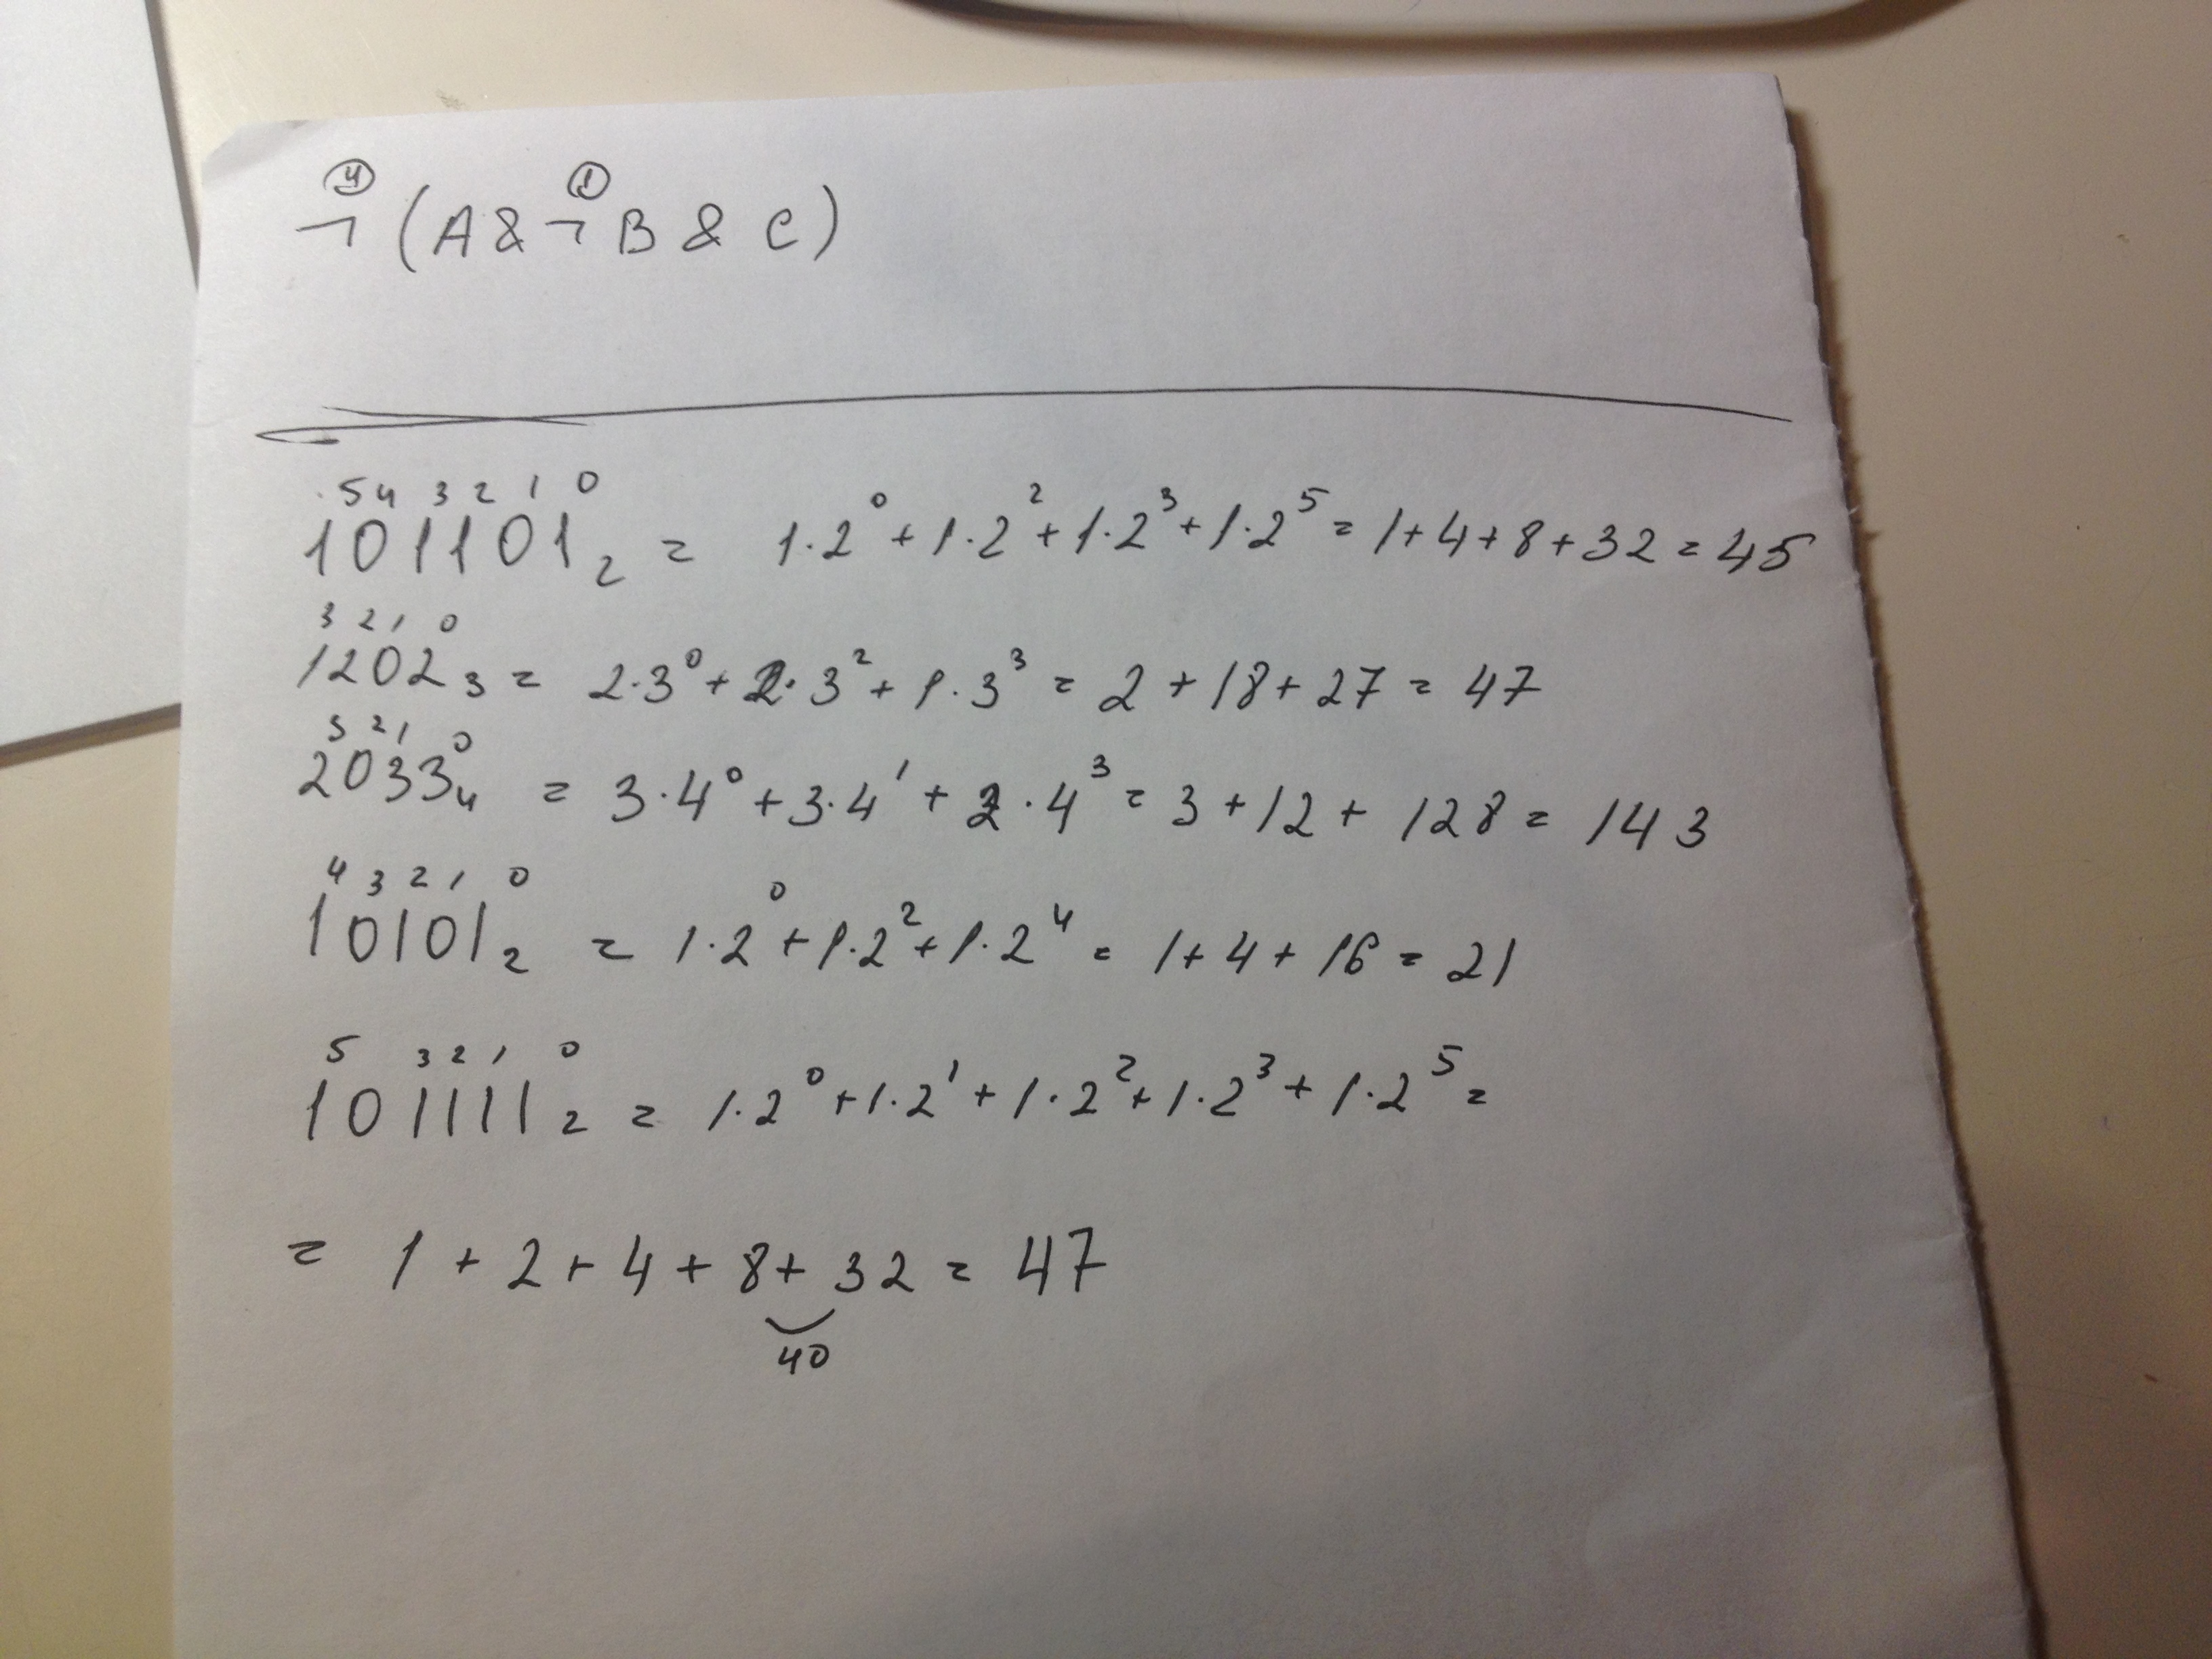 ④ ①
¬ (A & ¬ B & C)
5 4 3 2 1 0
101101₂ = 1·2⁰ + 1·2² + 1·2³ + 1·2⁵ = 1+4+8+32 = 45
3 2 1 0
1202₃ = 2·3⁰ + 2·3² + 1·3³ = 2 + 18 + 27 = 47
3 2 1 0
2033₄ = 3·4⁰ + 3·4¹ + 2·4³ = 3 + 12 + 128 = 143
4 3 2 1 0
10101₂ = 1·2⁰ + 1·2² + 1·2⁴ = 1+4+16 = 21
5 3 2 1 0
101111₂ = 1·2⁰ + 1·2¹ + 1·2² + 1·2³ + 1·2⁵ =
= 1 + 2 + 4 + 8 + 32 = 47
40